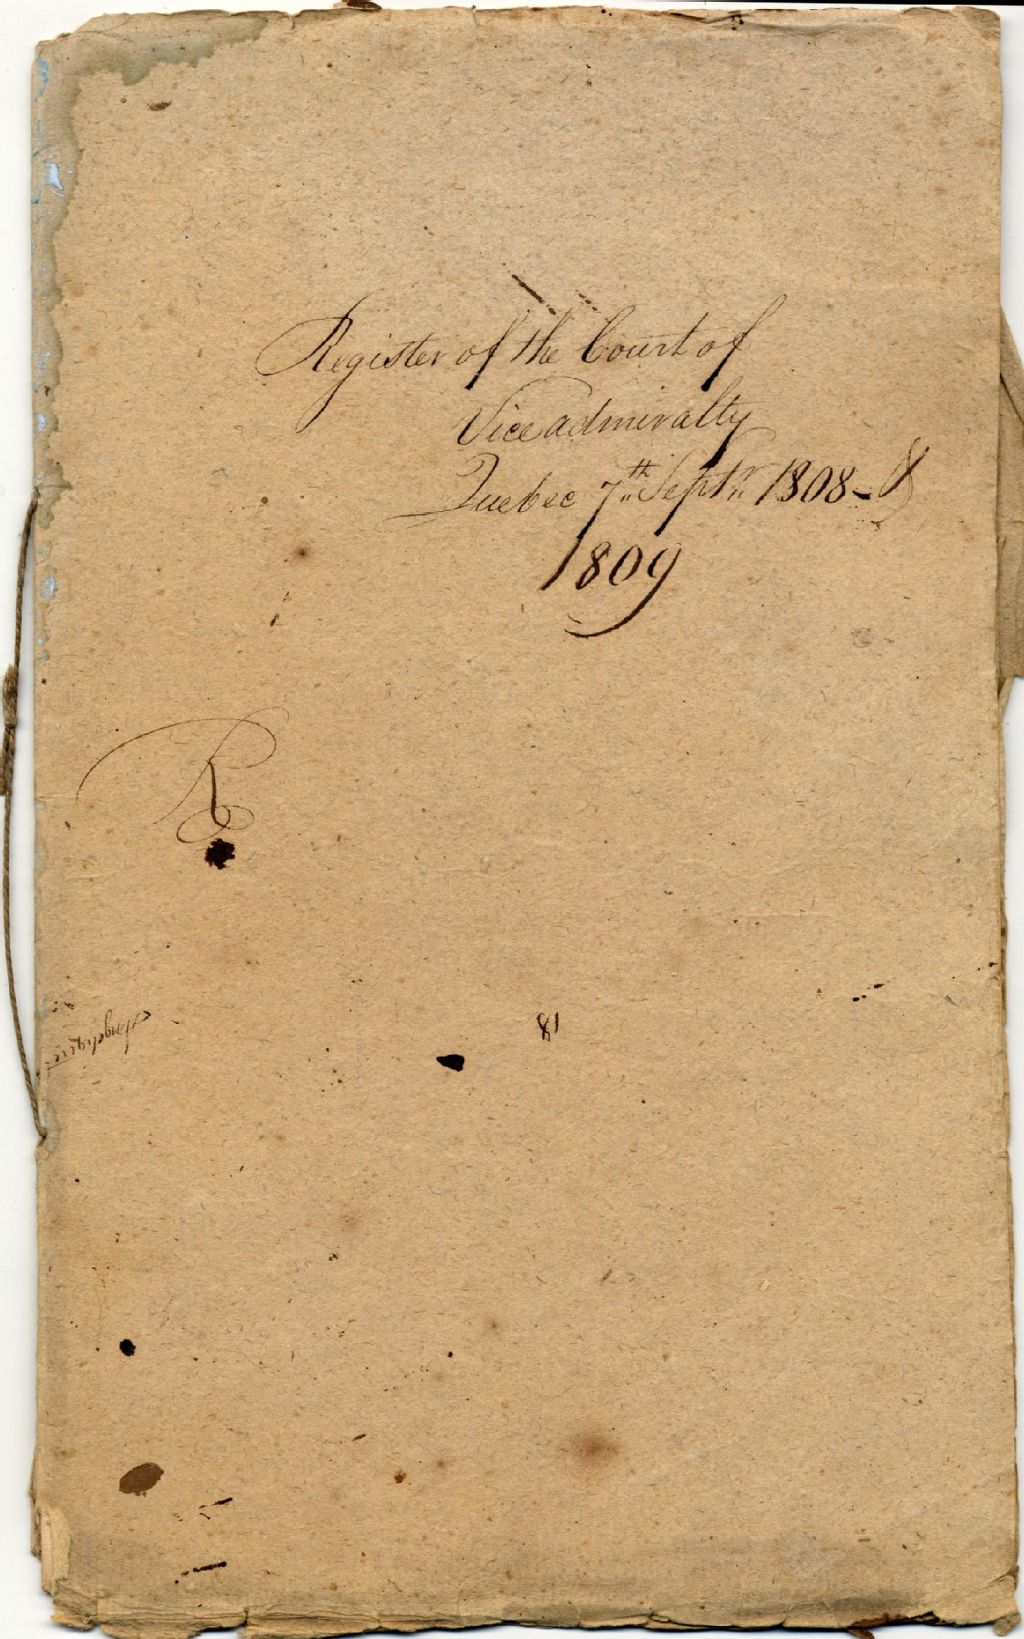 Register of the Court of
Vice admiralty
Quebec 7th Septr 1808 - &
1809
R
18
Angelique